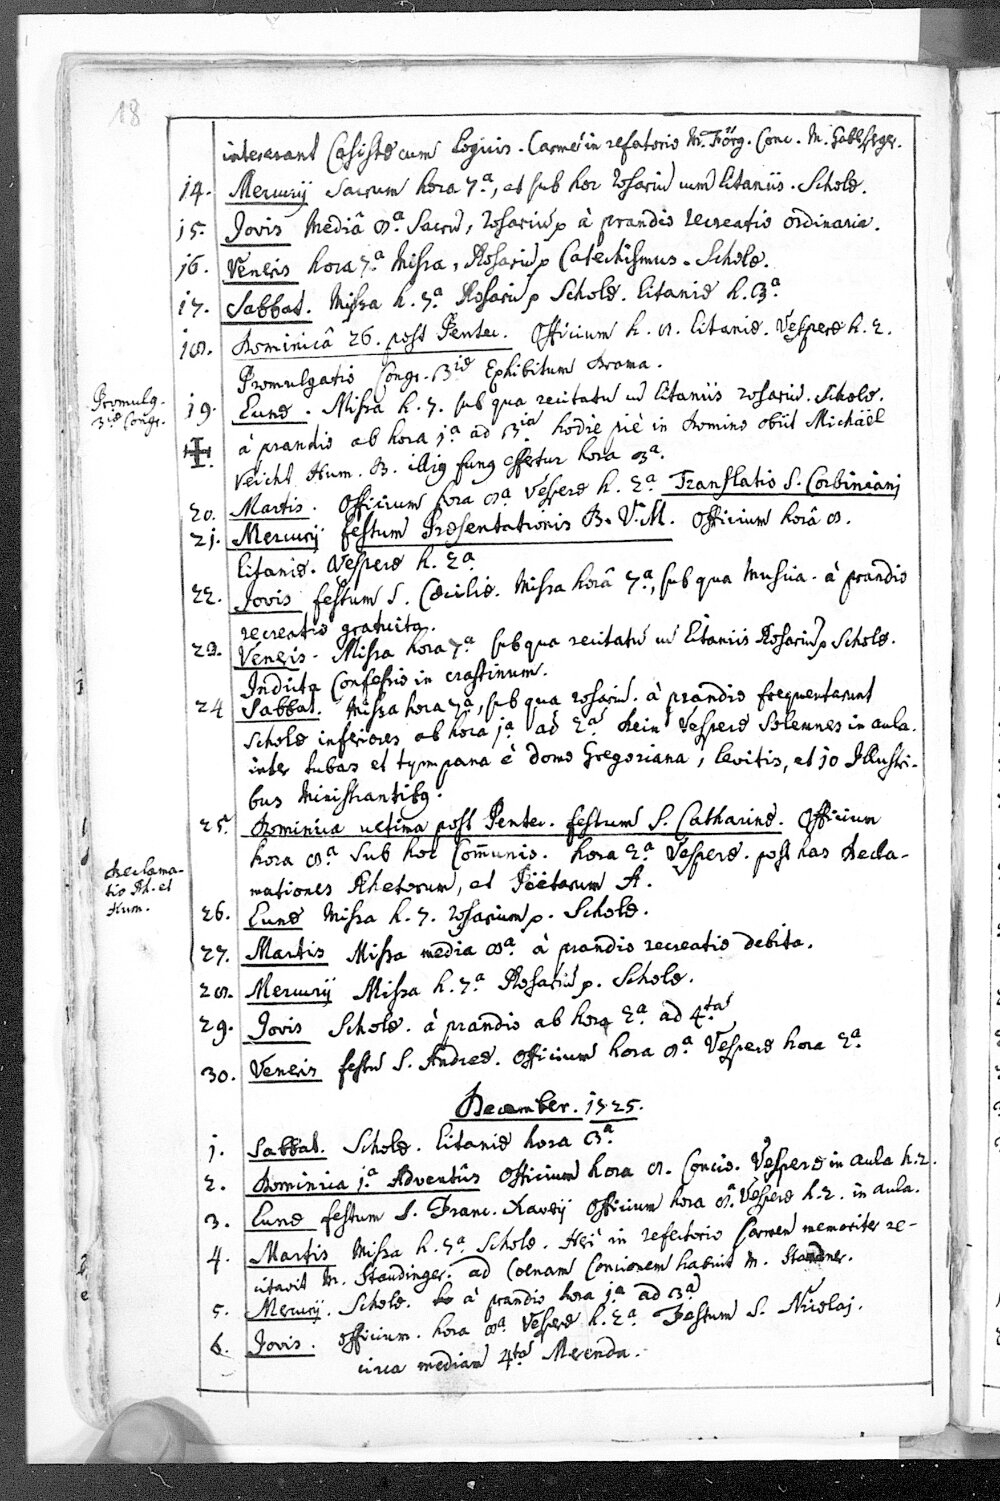 18
intererant Casistæ cum Logicis. Carmē in refatorio M. Förg. Conc. M. Gablseger.
14. Mercurij Sacrum hora 7.ª, et sub hoc rosariū cum litaniis. Scholæ.
15. Jovis Mediâ 8.ª Sacrū, rosariū p à prandio recreatio ordinaria.
16. Veneris hora 7.ª Missa, Rosariū p Catechismus. Scholæ.
17. Sabbat. Missa h. 7.ª Rosariū p Scholæ. litaniæ h. 3.ª
18. Dominicâ 26. post Pentec. Officium h. 8. litaniæ. Vesperæ h. 2.
Promulgatio Congr. 3tiæ Exhibitum Drama.
Promulg.
3tiæ Congr.
19. Lunæ. Missa h. 7. sub qua recitatū cū litaniis rosariū. Scholæ.
à prandio ab hora 1.ª ad 3iã hodie piè in Domino obiit Michaël
Veicht Hum. B. illig funq effertur hora 3ª.
20. Martis. Officium hora 8ª Vesperæ h. 2ª Translatio S. Corbiniani
21. Mercurij festum Præsentationis B. V. M. Officium horâ 8.
litaniæ. Vesperæ h. 2ª.
22. Jovis festum S. Cæciliæ. Missa horâ 7.ª, sub qua Musica. à prandio
recreatio gratuita.
23. Veneris. Missa hora 7.ª sub qua recitatū cū litaniis Rosariū p Scholæ.
Indicta Confessio in crastinum.
24 Sabbat. Missa hora 7.ª, sub qua rosariū. à prandio frequentarunt
scholæ inferiores ab hora 1.ª ad 2.ã dein Vesperæ Solemnes in aula.
inter tubas et tympana è domo Gregoriana, levitis, et 10 Illustri-
bus Ministrantibq.
25. Dominica ultima post Pentec. festum S. Catharinæ. Officium
hora 8.ª Sub hoc Com̄unio. hora 2.ª Vesperæ. post has Decla-
mationes Rhetorum, et Poëtarum A.
Declama-
tio Rh. et
Hum.
26. Lunæ Missa h. 7. rosarium p. Scholæ.
27. Martis Missa media 8ª à prandio recreatio debita.
28. Mercurij Missa h. 7.ª Rosariū p. Scholæ.
29. Jovis Scholæ. à prandio ab hora 2.ª ad 4.tã
30. Veneris festū S. Andreæ. Officium hora 8.ª Vesperæ hora 2.ª
December. 1725.
1. Sabbat. Scholæ. litaniæ hora 3.ª
2. Dominica 1.ª Adventûs Officium hora 8. Concio. Vesperæ in aula h. 2.
3. Lunæ festum S. Franc. Xaverij Officium hora 8.ª Vesperæ h. 2. in aula.
4. Martis Missa h. 7.ª Scholæ. Heri in refectorio Carmen memoriter re-
citavit M. Staudinger. ad Coenam Concionem habuit M.
5. Mercurij. Scholæ. à prandio hora 1.ª ad 3.ã
6. Jovis. Officium. hora 8ª Vesperæ h. 2.ª Festum S. Nicolaj.
circa mediam 4.tã Merenda.